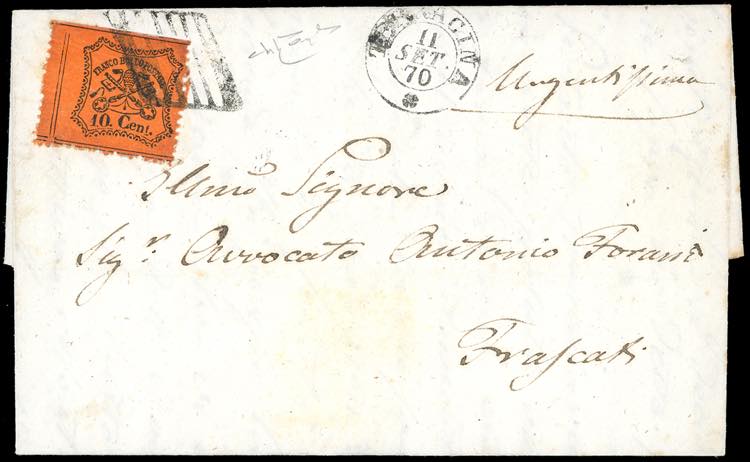 FRANCO BOLLO POSTALE
10 Cent.
TERRACINA
11
SET.
70
Urgentissima
Illmo Signore
Sigr. Avvocato Antonio Forani
Frascati